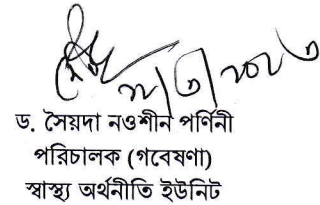 ড. সৈয়দা নওশীন পর্ণিনী
পরিচালক (গবেষণা)
স্বাস্থ্য অর্থনীতি ইউনিট